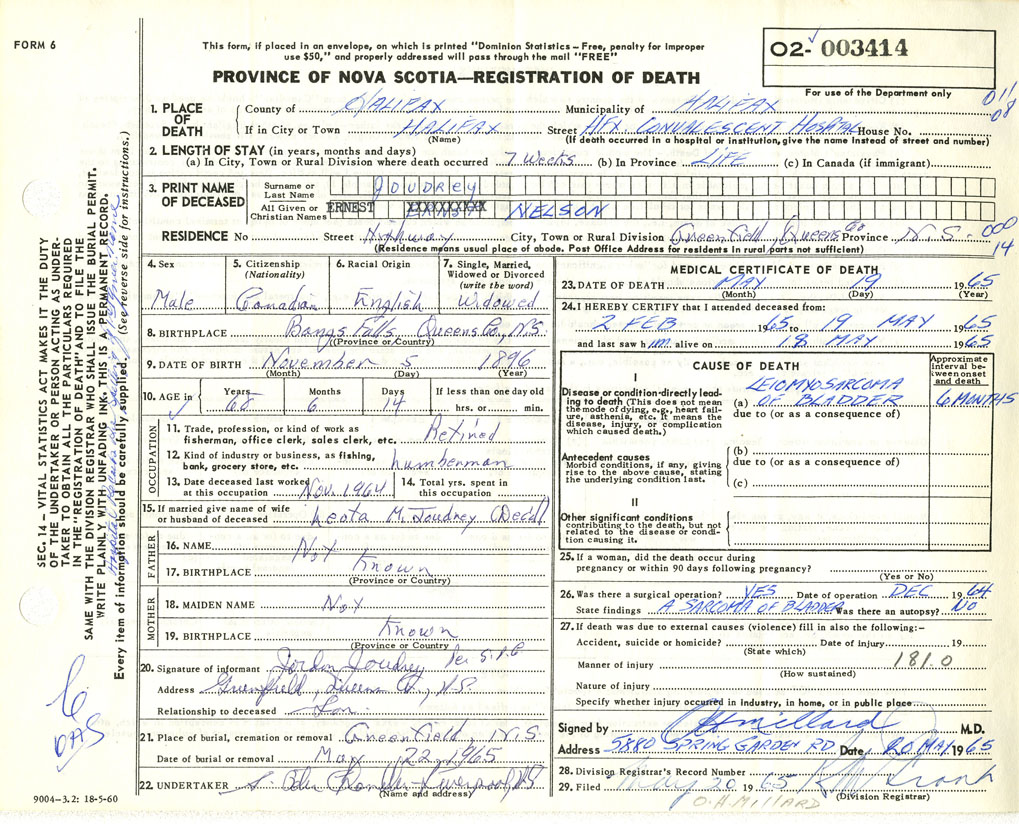 FORM 6
This form, if placed in an envelope, on which is printed "Dominion Statistics – Free, penalty for improper
use $50," and properly addressed will pass through the mail "FREE"
PROVINCE OF NOVA SCOTIA—REGISTRATION OF DEATH
O2- 003414
For use of the Department only
011
08
1. PLACE OF DEATH
County of HALIFAX Municipality of HALIFAX
If in City or Town HALIFAX Street HFX. CONVALESCENT HOSPITAL House No.
(Name) (If death occurred in a hospital or institution, give name instead of street and number)
2. LENGTH OF STAY (in years, months and days)
(a) In City, Town or Rural Division where death occurred 7 Weeks (b) In Province LIFE (c) In Canada (if immigrant)
3. PRINT NAME OF DECEASED
Surname or Last Name JOUDREY
All Given or Christian Names ERNEST XXXXXXXXXX NELSON
RESIDENCE No Street Highway City, Town or Rural Division Greenfield, Queens Co Province N.S. - 000
14
(Residence means usual place of abode. Post Office Address for residents in rural parts not sufficient)
4. Sex
Male
5. Citizenship
(Nationality)
Canadian
6. Racial Origin
English
7. Single, Married, Widowed or Divorced
(write the word)
Widowed
8. BIRTHPLACE Bangs Falls, Queens Co, N.S.
(Province or Country)
9. DATE OF BIRTH November 5 1896
(Month) (Day) (Year)
10. AGE in
Years Months Days If less than one day old
68 6 14 hrs. or min.
OCCUPATION
11. Trade, profession, or kind of work as
fisherman, office clerk, sales clerk, etc. Retired
12. Kind of industry or business, as fishing,
bank, grocery store, etc. Lumberman
13. Date deceased last worked
at this occupation Nov. 1964
14. Total yrs. spent in
this occupation
15. If married give name of wife
or husband of deceased Leota M. Joudrey (Decd)
FATHER
16. NAME Not
17. BIRTHPLACE Known
(Province or Country)
MOTHER
18. MAIDEN NAME Not
19. BIRTHPLACE Known
(Province or Country)
20. Signature of informant Jordon Joudrey Per S.P.C
Address Greenfield, Queens Co, N.S.
Relationship to deceased Son
21. Place of burial, cremation or removal Greenfield, N.S.
Date of burial or removal May 22, 1965
22. UNDERTAKER Liverpool, NS
(Name and address)
MEDICAL CERTIFICATE OF DEATH
23. DATE OF DEATH MAY 19 1965
(Month) (Day) (Year)
24. I HEREBY CERTIFY that I attended deceased from:
2 FEB 1965 to 19 MAY 1965
and last saw him alive on 18 MAY 1965
CAUSE OF DEATH
Approximate interval between onset and death
I
Disease or condition directly leading to death (This does not mean the mode of dying, e.g., heart failure, asthenia, etc. It means the disease, injury, or complication which caused death.)
(a) LEIOMYOSARCOMA OF BLADDER 6 MONTHS
due to (or as a consequence of)
Antecedent causes
Morbid conditions, if any, giving rise to the above cause, stating the underlying condition last.
(b)
due to (or as a consequence of)
(c)
II
Other significant conditions
contributing to the death, but not related to the disease or condition causing it.
25. If a woman, did the death occur during
pregnancy or within 90 days following pregnancy?
(Yes or No)
26. Was there a surgical operation? YES Date of operation DEC 1964
State findings A SARCOMA OF BLADDER Was there an autopsy? NO
27. If death was due to external causes (violence) fill in also the following:–
Accident, suicide or homicide? Date of injury 19
(State which)
Manner of injury 181.0
(How sustained)
Nature of injury
Specify whether injury occurred in industry, in home, or in public place
Signed by OHMillard M.D.
Address 5880 SPRING GARDEN RD Date, 20 MAY 1965
28. Division Registrar's Record Number
29. Filed May 20 1965
(Division Registrar)
O.H. MILLARD
9004-3.2: 18-5-60
SEC. 14 – VITAL STATISTICS ACT MAKES IT THE DUTY
OF THE UNDERTAKER OR PERSON ACTING AS UNDER-
TAKER TO OBTAIN ALL THE PARTICULARS REQUIRED
IN THE "REGISTRATION OF DEATH" AND TO FILE THE
SAME WITH THE DIVISION REGISTRAR WHO SHALL ISSUE THE BURIAL PERMIT.
WRITE PLAINLY WITH UNFADING INK. THIS IS A PERMANENT RECORD.
Every item of information should be carefully supplied. (See reverse side for instructions.)